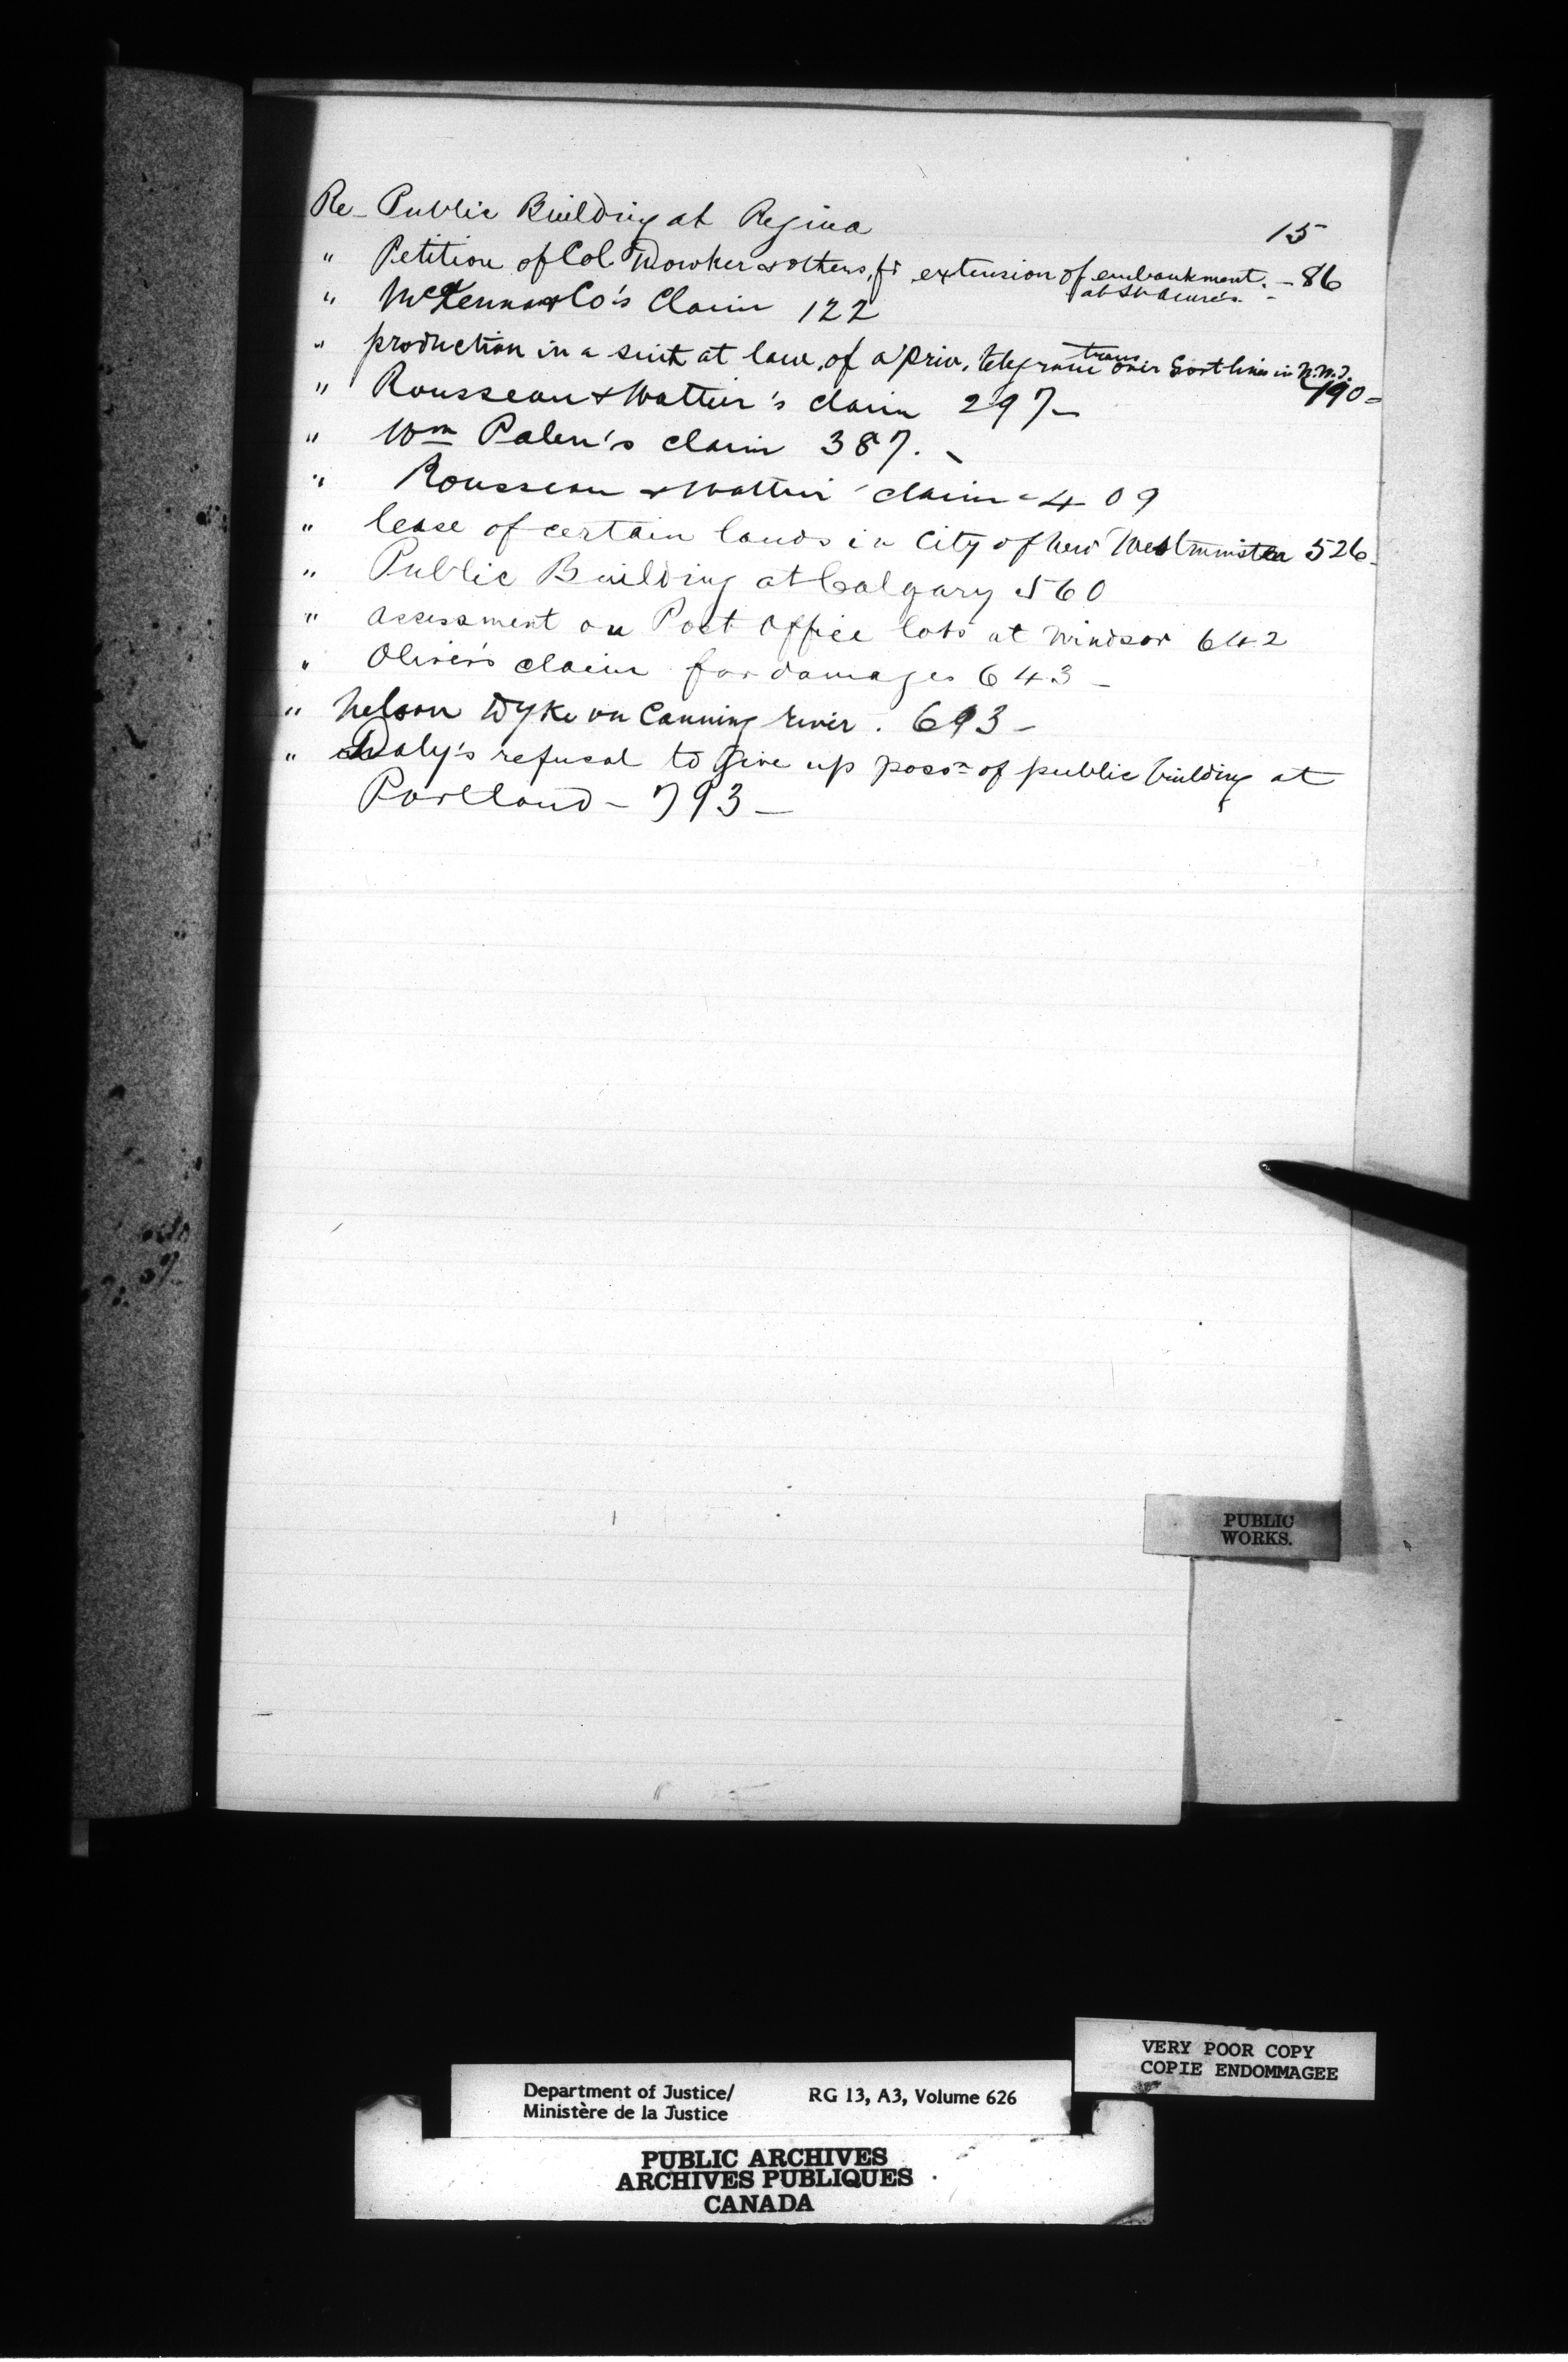 Re - Public Building at Regina 15
" Petition of Col. Dowker & others, fr extension of embankment. - 86
at St Anne's -
" McKenna & Co's Claim 122
" production in a suit at law, of a priv. telegram trans over Govt lines in N.W.T.
190 =
" Rousseau & Wattier's claim 297 -
" Wm Palen's claim 387. -
" Rousseau & Wattier' claim - 409
" lease of certain lands in City of New Westminster 526 -
" Public Building at Calgary 560
" assessment on Post Office lots at Windsor 642
" Oliver's claim for damages 643 -
" Nelson Dyke on Canning river. 693 -
" Daly's refusal to give up possn of public building at
Portland - 793 -
PUBLIC
WORKS.
VERY POOR COPY
COPIE ENDOMMAGEE
Department of Justice/ RG 13, A3, Volume 626
Ministère de la Justice
PUBLIC ARCHIVES
ARCHIVES PUBLIQUES
CANADA